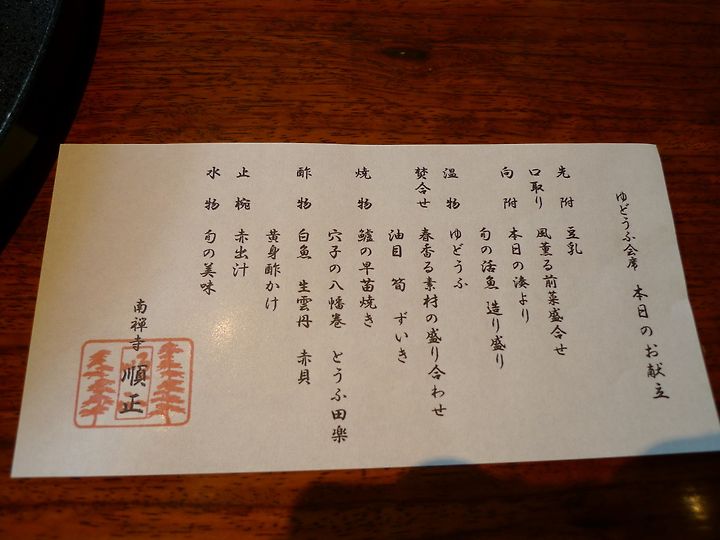 ゆどうふ会席　本日のお献立
先　附　豆乳
口取り　風薫る前菜盛合せ
向　附　本日の湊より
旬の活魚　造り盛り
温　物　ゆどうふ
焚合せ　春香る素材の盛り合わせ
油目　筍　ずいき
焼　物　鱸の早苗焼き
穴子の八幡巻　とうふ田楽
酢　物　白魚　生雲丹　赤貝
黄身酢かけ
止　椀　赤出汁
水　物　旬の美味
南禅寺　順正